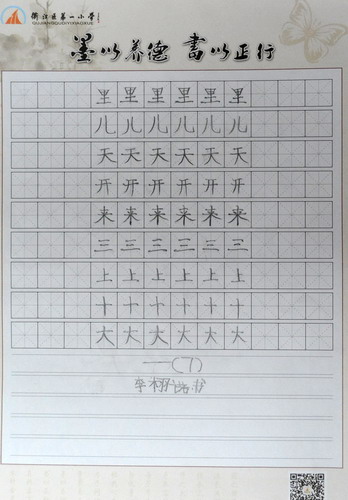 衢江区第一小学
QUJIANGQUDIYIXIAOXUE
墨以养德 書以正行
里里里里里里
儿儿儿儿儿儿
天天天天天天
开开开开开开
来来来来来来
三三三三三三
上上上上上上
十十十十十十
大大大大大大
一(7)
李栩 书